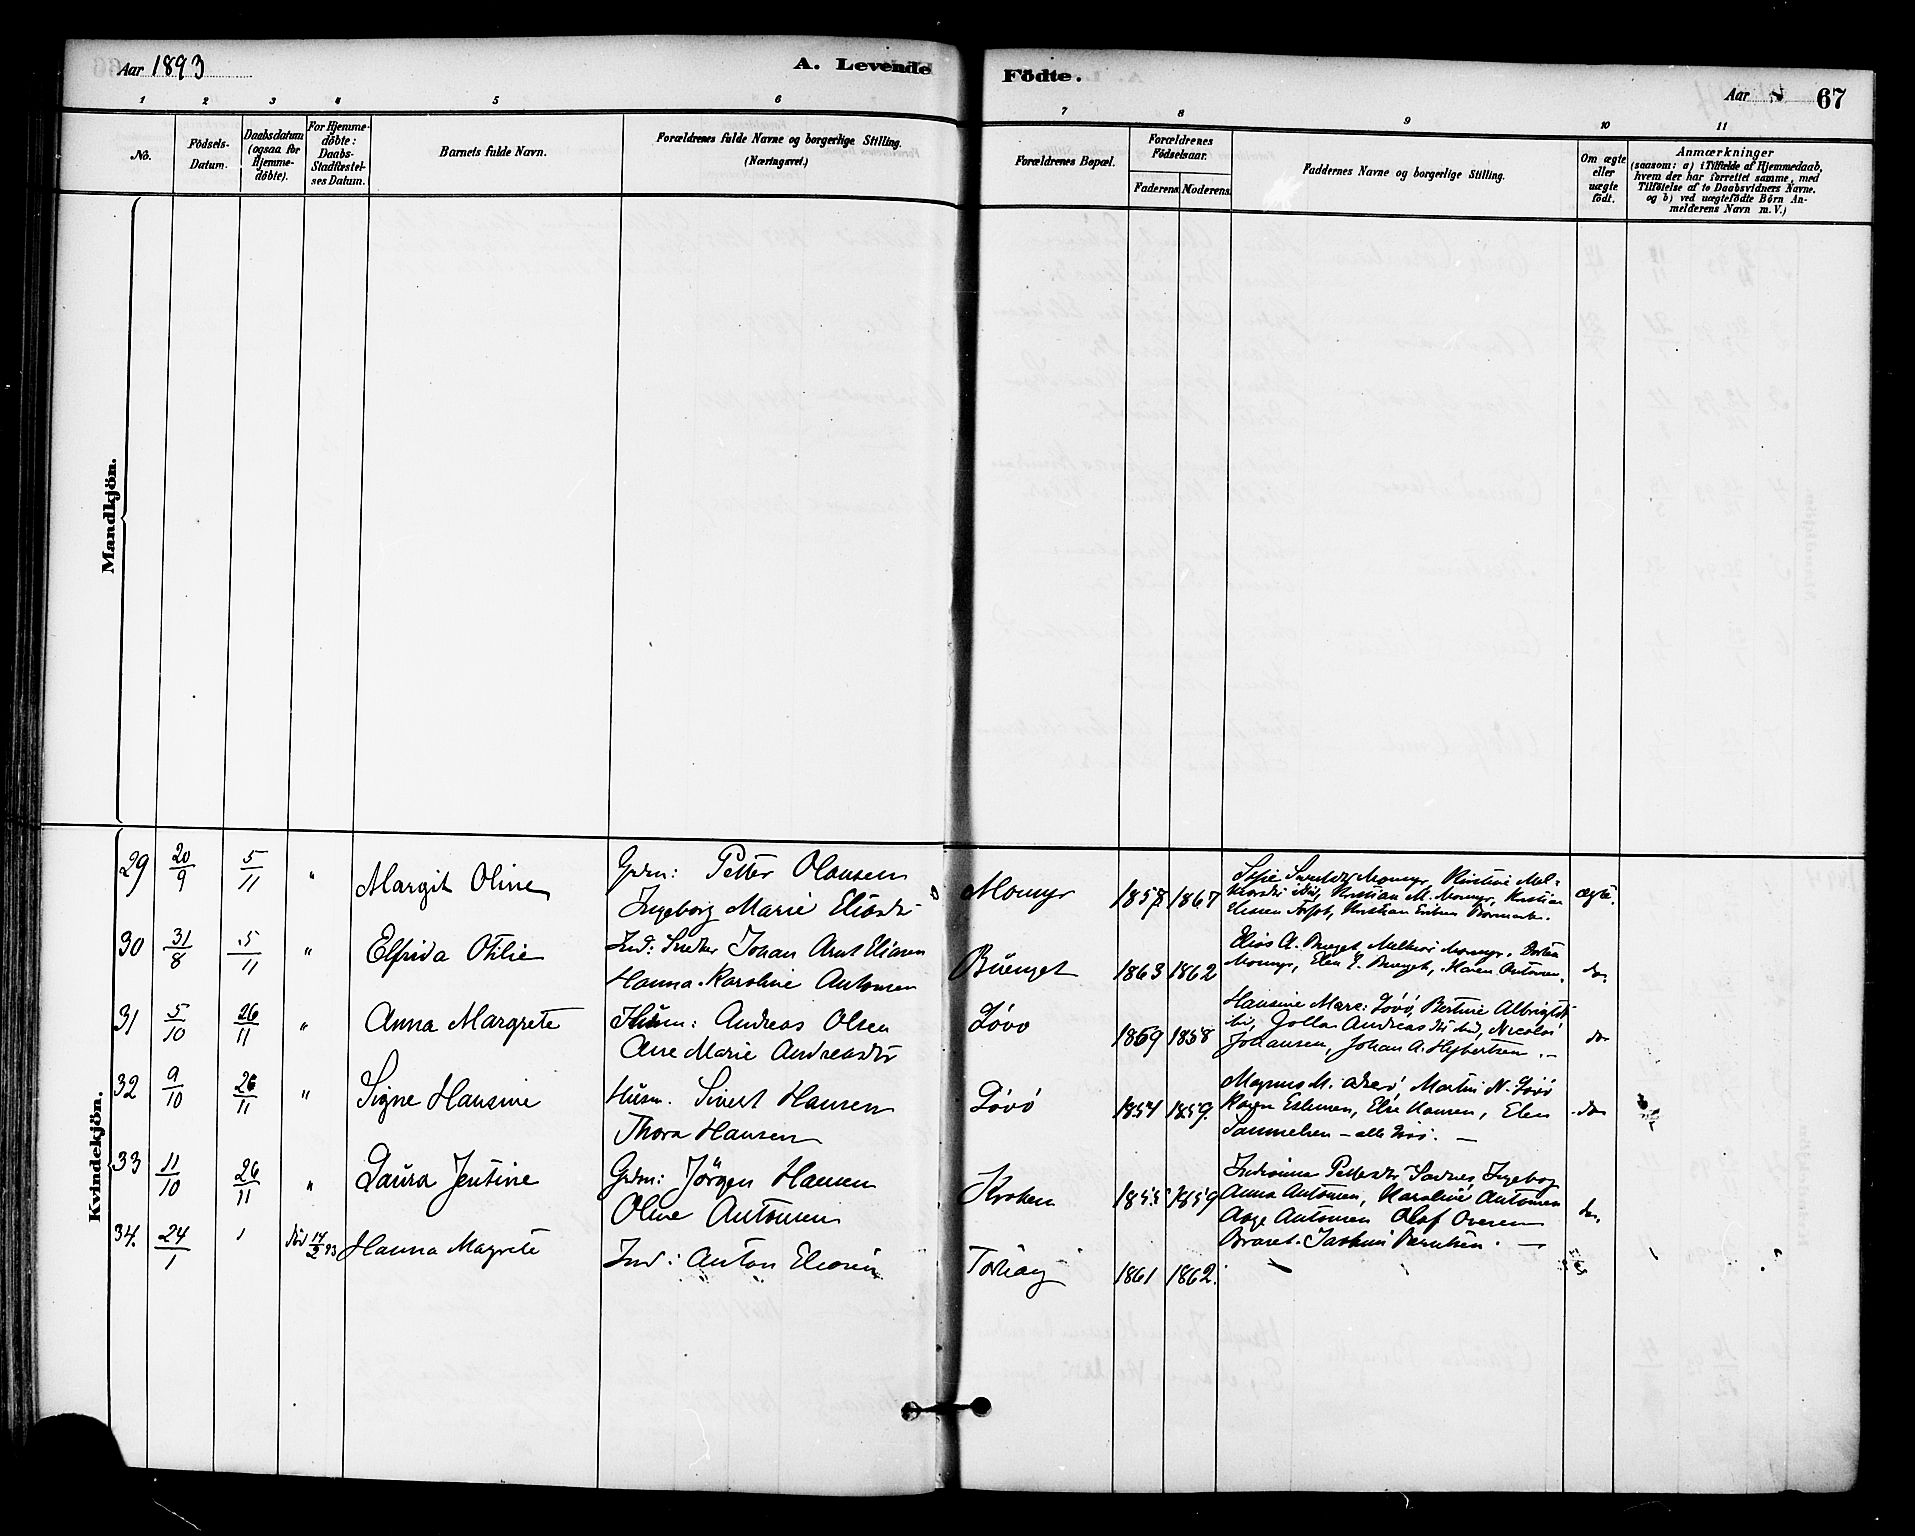 Aar 1893
A. Levende
Födte.
Aar
67
1 2 3 4 5 6 7 8 9 10 11
No.
Födsels-
Datum.
Daabsdatum
(ogsaa for
Hjemme-
döbte).
For Hjemme-
döbte:
Daabs-
Stadfæstel-
ses Datum.
Barnets fulde Navn.
Forældrenes fulde Navne og borgerlige Stilling.
(Næringsvei.)
Forældrenes Bopæl.
Forældrenes
Födselsaar.
Faderens. Moderens.
Faddernes Navne og borgerlige Stilling.
Om ægte
eller
uægte
födt.
Anmærkninger
(saasom: a) i Tilfælde af Hjemmedaab,
hvem der har forrettet samme, med
Tilföielse af to Daabsvidners Navne,
og b) ved uægtefödte Börn An-
melderens Navn m. V.)
Mandkjön.
Kvindekjön.
29 20/9 5/11 " Margit Oline
Gdm: Petter Olausen
Ingeborg Marie Eliasdr
Momyr 1857 1867
ægte.
30 31/8 5/11 " Elfrida Otilie
Ind: Snekker Johan Arnt Eliasen
Hanna Karoline Antonsen
Buenget 1863 1862
Elias A. Buenget, Melkior Momyr,
Momyr, Elen E. Buenget, Maren Antonsen.
do.
31 5/10 26/11 " Anna Margrete
Husm: Andreas Olsen
Ane Marie Andreasdr
Lövö 1869 1858
Hansine Marc: Lövö, Bertine Albrigts
Andreas Nicolai
Johansen, Johan A. Hybertsen. -
do
32 9/10 26/11 " Signe Hansine
Husm. Sivert Hansen
Thora Hansen
Lövö 1854 1859.
Magnus M. Martin N. Lövö
Karen Estensen, Else Hansen, Elen
Sammelsen - alle Lövö. -
do
33 11/10 26/11 " Laura Jentine
Gdm: Jörgen Hansen
Oline Antonsen
Kroken 1855 1859
Pettersdr Ingeborg
Anna Antonsen, Karoline Antonsen
Aage Antonsen Olaf
do.
34. 24/1 död 14/2 93 Hanna Magrete
Ind: Anton
Tarhaug 1861 1862.